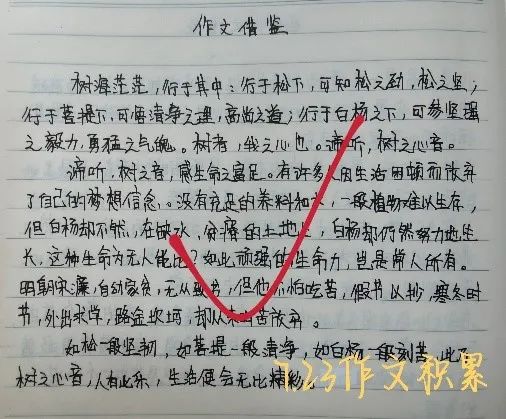 作文借鉴
树海茫茫,行于其中:行于松下,可知松之劲,松之坚;
行于菩提下,可悟清净之理,高尚之道;行于白杨之下,可参坚强
之毅力,勇猛之气魄。树者,我之心也。谛听,树之心音。
谛听,树之音,感生命之富足。有许多人因生活困顿而放弃
了自己的梦想信念。没有充足的养料和水,一般植物难以生存,
但白杨却不然,在缺水,贫瘠的土地上,白杨却仍然努力地生
长,这种生命力无人能比?如此顽强的生命力,岂是常人所有。
明朝宋濂,自幼家贫,无从致书,但他不怕吃苦,假书以抄,寒冬时
节,外出求学,路益坎坷,却从未因苦放弃。
如松一般坚韧,如菩提一般清净,如白杨一般刻苦,此乃
树之心音,人有此乐,生活便会无比精彩。
7.23作文积累